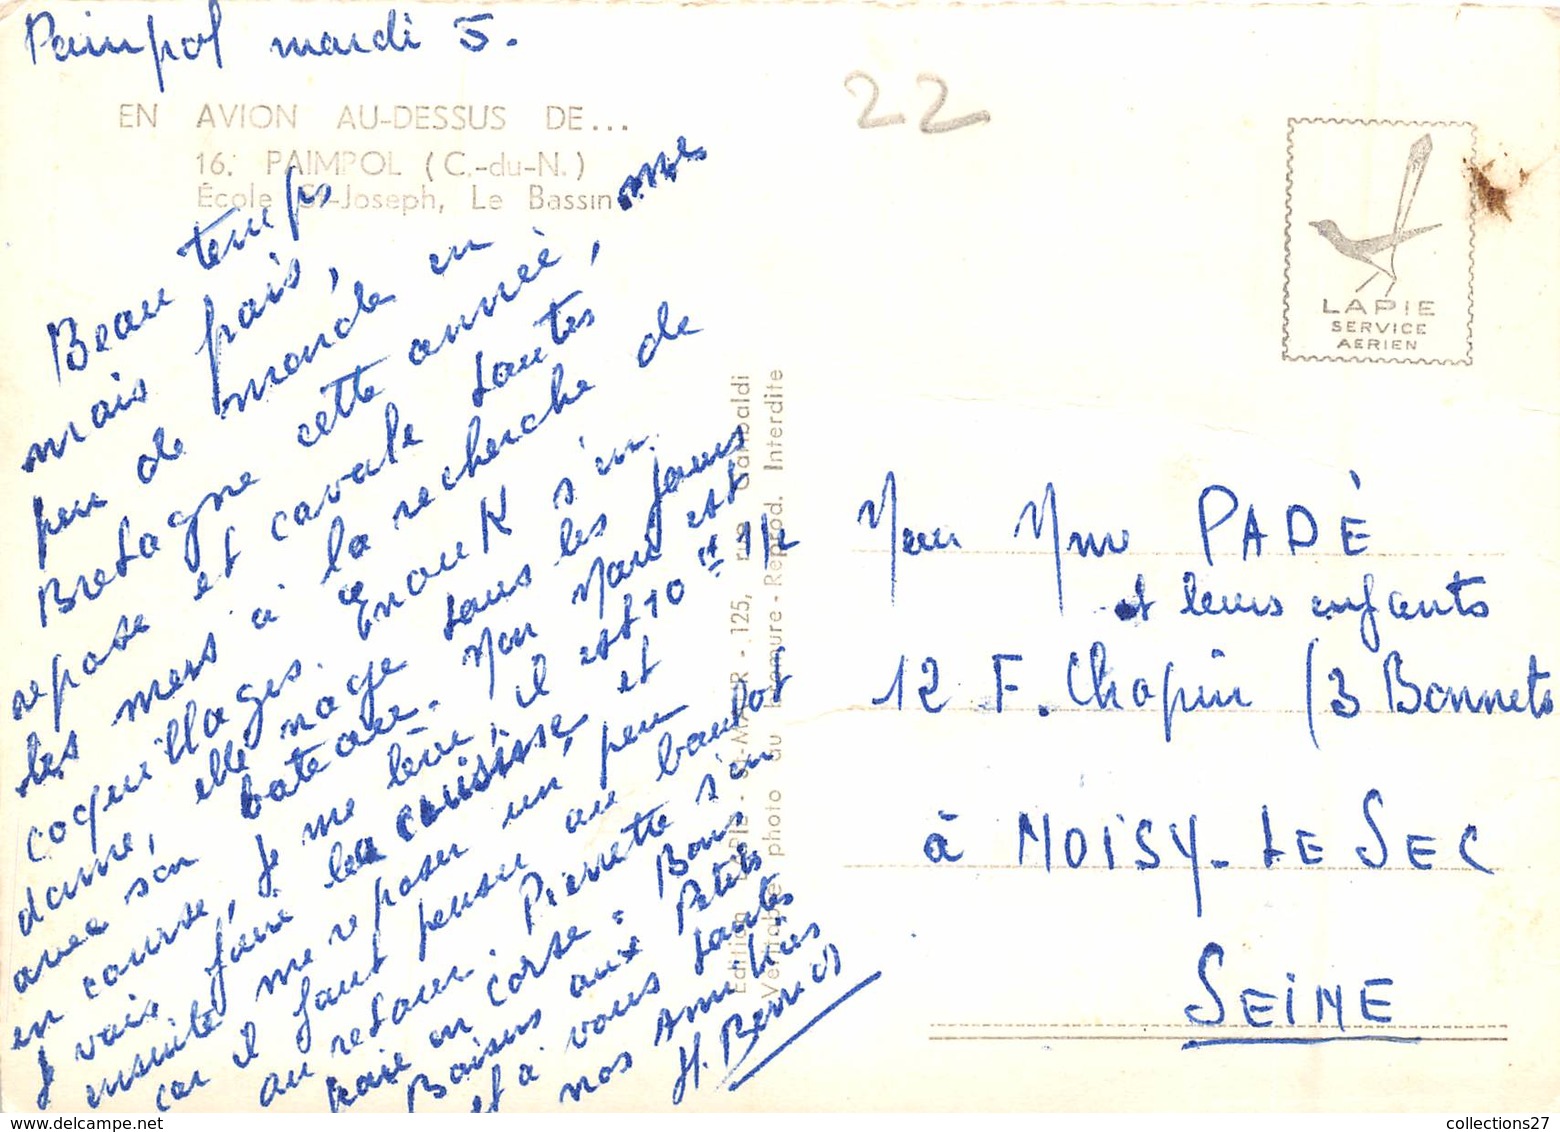 Paimpol mardi 5.
EN AVION AU-DESSUS DE...
16. PAIMPOL (C.-du-N.)
École St-Joseph, Le Bassin
Beau temps
mais frais,
peu de monde en
Bretagne cette année,
repose et cavale toutes
les mers à la recherche de
coquillages. Enouk s'en
dame, elle nage tous les jours
avec son bateau. Mon Mari est
en course, je me lève, il est 10 H 1/2
je vais faire la cuisine, et
ensuite me reposer un peu
car il faut penser au boulot
au retour. Pierrette s'en
paie en Corse. Bons
Baisers aux Petits
et à vous toutes
nos Amitiés
H. Berriet
Edition LAPIE - St-MAUR - 125, rue Garibaldi
Véritable photo au bromure - Reprod. Interdite
22
LAPIE
SERVICE
AERIEN
Mme PADÈ
et leurs enfants
12 F. Chopin (3 Bonnets
à NOISY-LE SEC
SEINE
collections27